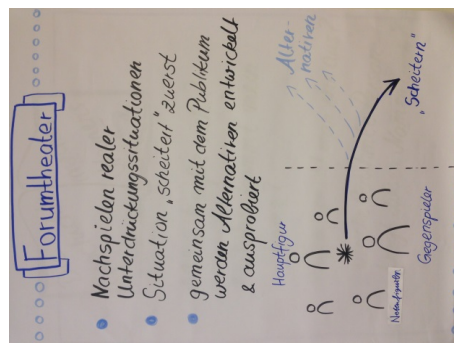 Forumtheater
Nachspielen realer
Unterdrückungssituationen
Situation „scheitert" zuerst
gemeinsam mit dem Publikum
werden Alternativen entwickelt
& ausprobiert
Hauptfigur
Gegenspieler
Alter-
nativen
„Scheitern"